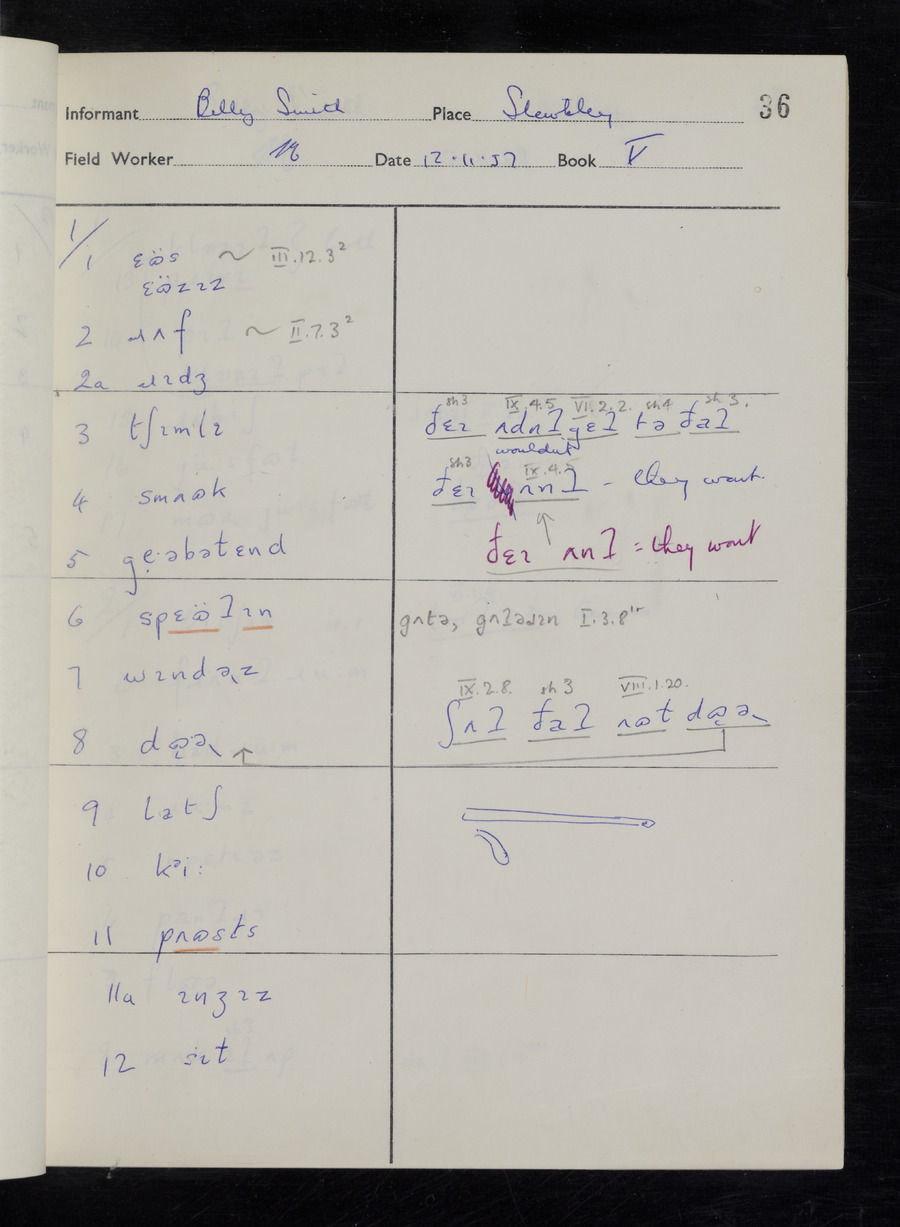 36
Informant Billy Smith Place Stewkley
Field Worker Date 12.11.57 Book V
1/
1 ɛö̤s ~ III.12.3²
ɛözɪz
2 ɹʌf ~ II.7.3²
2a ɹɪdʒ
3 tʃɪmlɪ
4 smʌɷk
5 ge̤ˑəbətɛnd
6 spɛɷ̈ʔɪn
7 wɪndəʴz
8 dɷ̜əʴ
9 latʃ
10 kᵊiː
11 pʌɷsts
11a ɪnʒɪz
12 sɪt
sh3 IX.4.5 VI.2.2. sh4 sh3.
ðɛɪ ʌdnʔ gɛʔ tə ðaʔ
wouldn't
sh3 IX.4.5
ðɛɪ ʌnʔ - they won't.
ðɛɪ ʌnʔ = they won't
gʌtə, gʌʔəɹɪn I.3.8
IX.2.8. sh 3 VIII.1.20.
ʃʌʔ ðaʔ ʌɷt dɷ̜əʴ